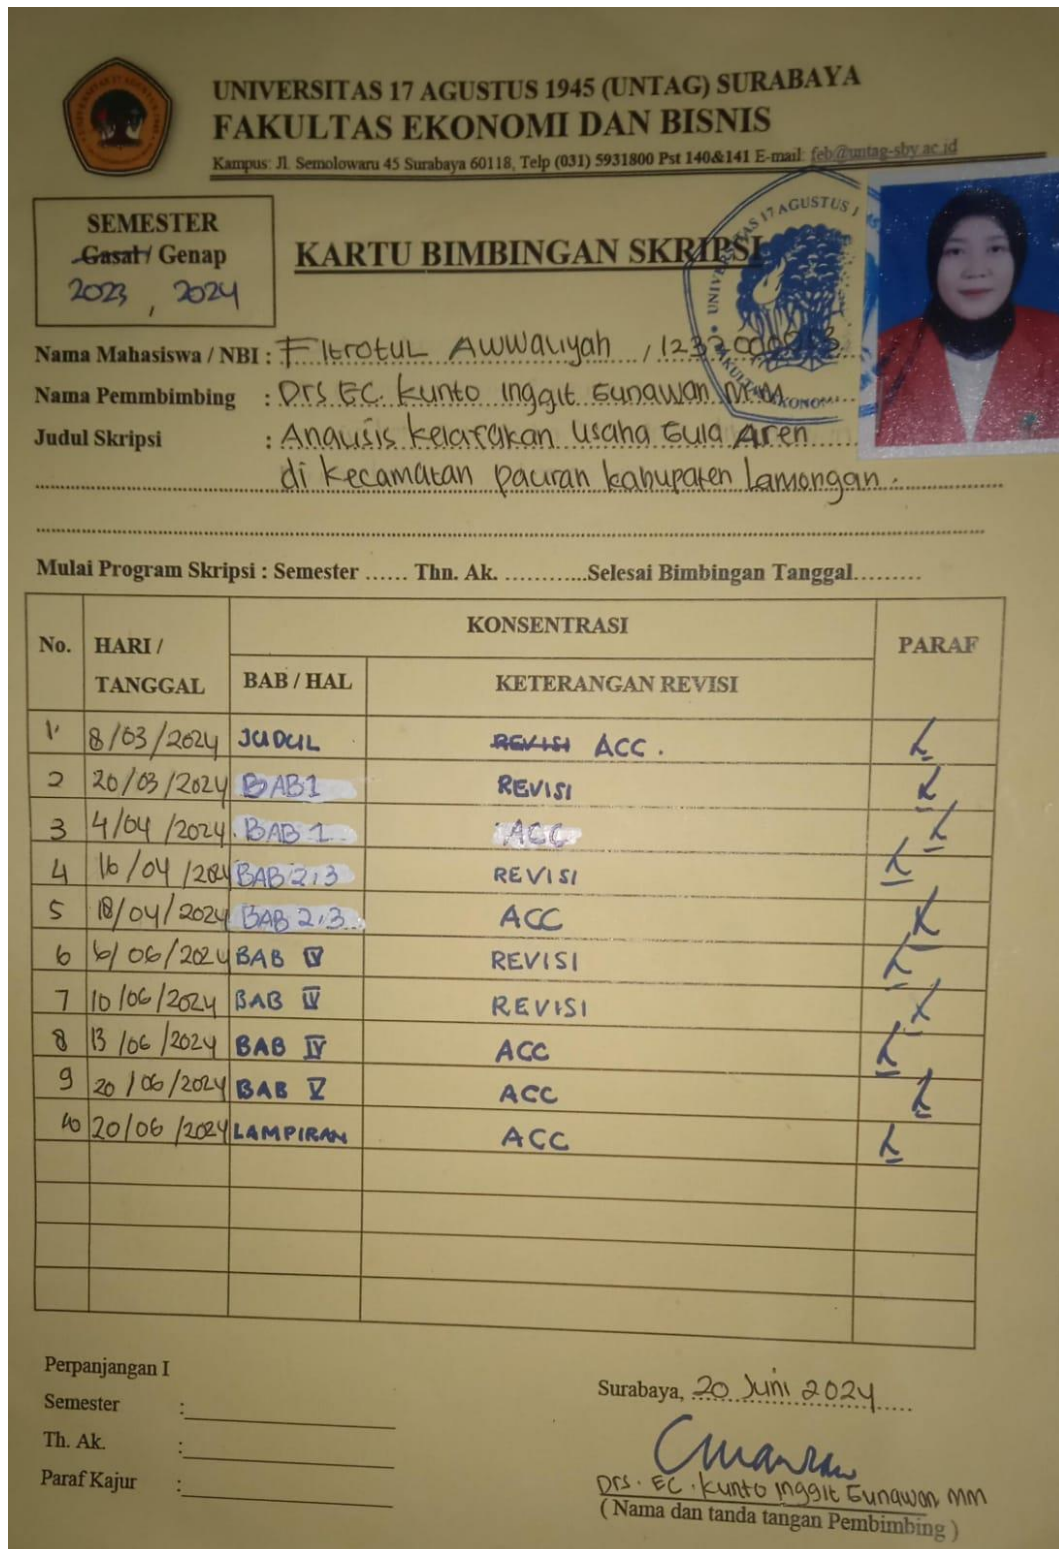 UNIVERSITAS 17 AGUSTUS 1945 (UNTAG) SURABAYA
FAKULTAS EKONOMI DAN BISNIS
Kampus: Jl. Semolowaru 45 Surabaya 60118, Telp (031) 5931800 Pst 140&141 E-mail: feb@untag-sby.ac.id
SEMESTER
Gasal / Genap
2023, 2024
KARTU BIMBINGAN SKRIPSI
UNIVERSITAS 17 AGUSTUS 1945
FAKULTAS EKONOMI
Nama Mahasiswa / NBI : Fitrotul Awwaliyah
Nama Pemmbimbing : Drs EC. Kunto Inggit Gunawan MM
Judul Skripsi : Analisis Kelayakan Usaha Gula Aren
di Kecamatan Paciran Kabupaten Lamongan.
Mulai Program Skripsi : Semester ...... Thn. Ak. ............Selesai Bimbingan Tanggal.........
No. HARI / TANGGAL KONSENTRASI PARAF
BAB / HAL KETERANGAN REVISI
1. 8/03/2024 JUDUL REVISI ACC.
2 20/03/2024 BAB 1 REVISI
3 4/04/2024 BAB 1 ACC
4 16/04/2024 BAB 2,3 REVISI
5 18/04/2024 BAB 2,3 ACC
6 6/06/2024 BAB IV REVISI
7 10/06/2024 BAB IV REVISI
8 13/06/2024 BAB IV ACC
9 20/06/2024 BAB V ACC
10 20/06/2024 LAMPIRAN ACC
Perpanjangan I
Semester :
Th. Ak. :
Paraf Kajur :
Surabaya, 20 Juni 2024
Drs. EC. Kunto Inggit Gunawan MM
( Nama dan tanda tangan Pembimbing )